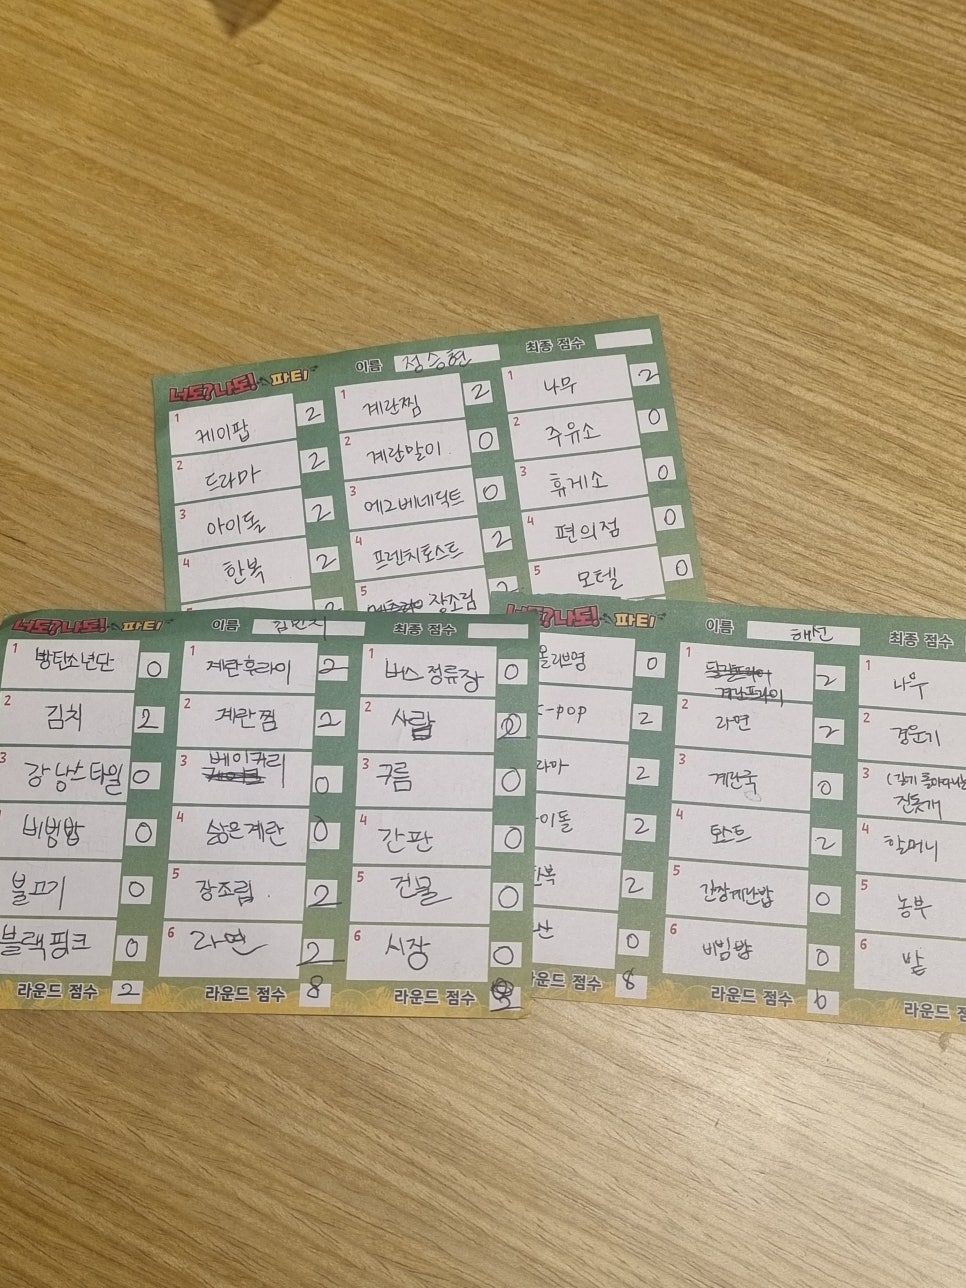 너도?나도! 파티
이름 정승현
최종 점수
1 케이팝 2
2 드라마 2
3 아이돌 2
4 한복 2
1 계란찜 2
2 계란말이 0
3 에그베네딕트 0
4 프렌치토스트 2
5 장조림
1 나무 2
2 주유소 0
3 휴게소 0
4 편의점 0
5 모텔 0
너도?나도! 파티
이름
최종 점수
방탄소년단 0
2 김치 2
3 강남스타일 0
비빔밥 0
불고기 0
블랙핑크 0
라운드 점수 2
1 계란후라이 2
2 계란찜 2
3 베이커리 0
4 삶은계란 0
5 장조림 2
6 라면 2
라운드 점수 8
1 버스정류장 0
2 사람
3 구름 0
4 간판 0
5 건물 0
6 시장 0
라운드 점수
너도?나도! 파티
이름 해선
최종 점수
올리브영 0
K-pop 2
라마 2
이돌 2
한복 2
산 0
라운드 점수 8
1 계란프라이 2
2 라면 2
3 계란국 0
4 토스트 2
5 간장계란밥 0
6 비빔밥 0
라운드 점수 6
1 나무
2 경운기
3 진돗개
4 할머니
5 농부
6 밭
라운드 점